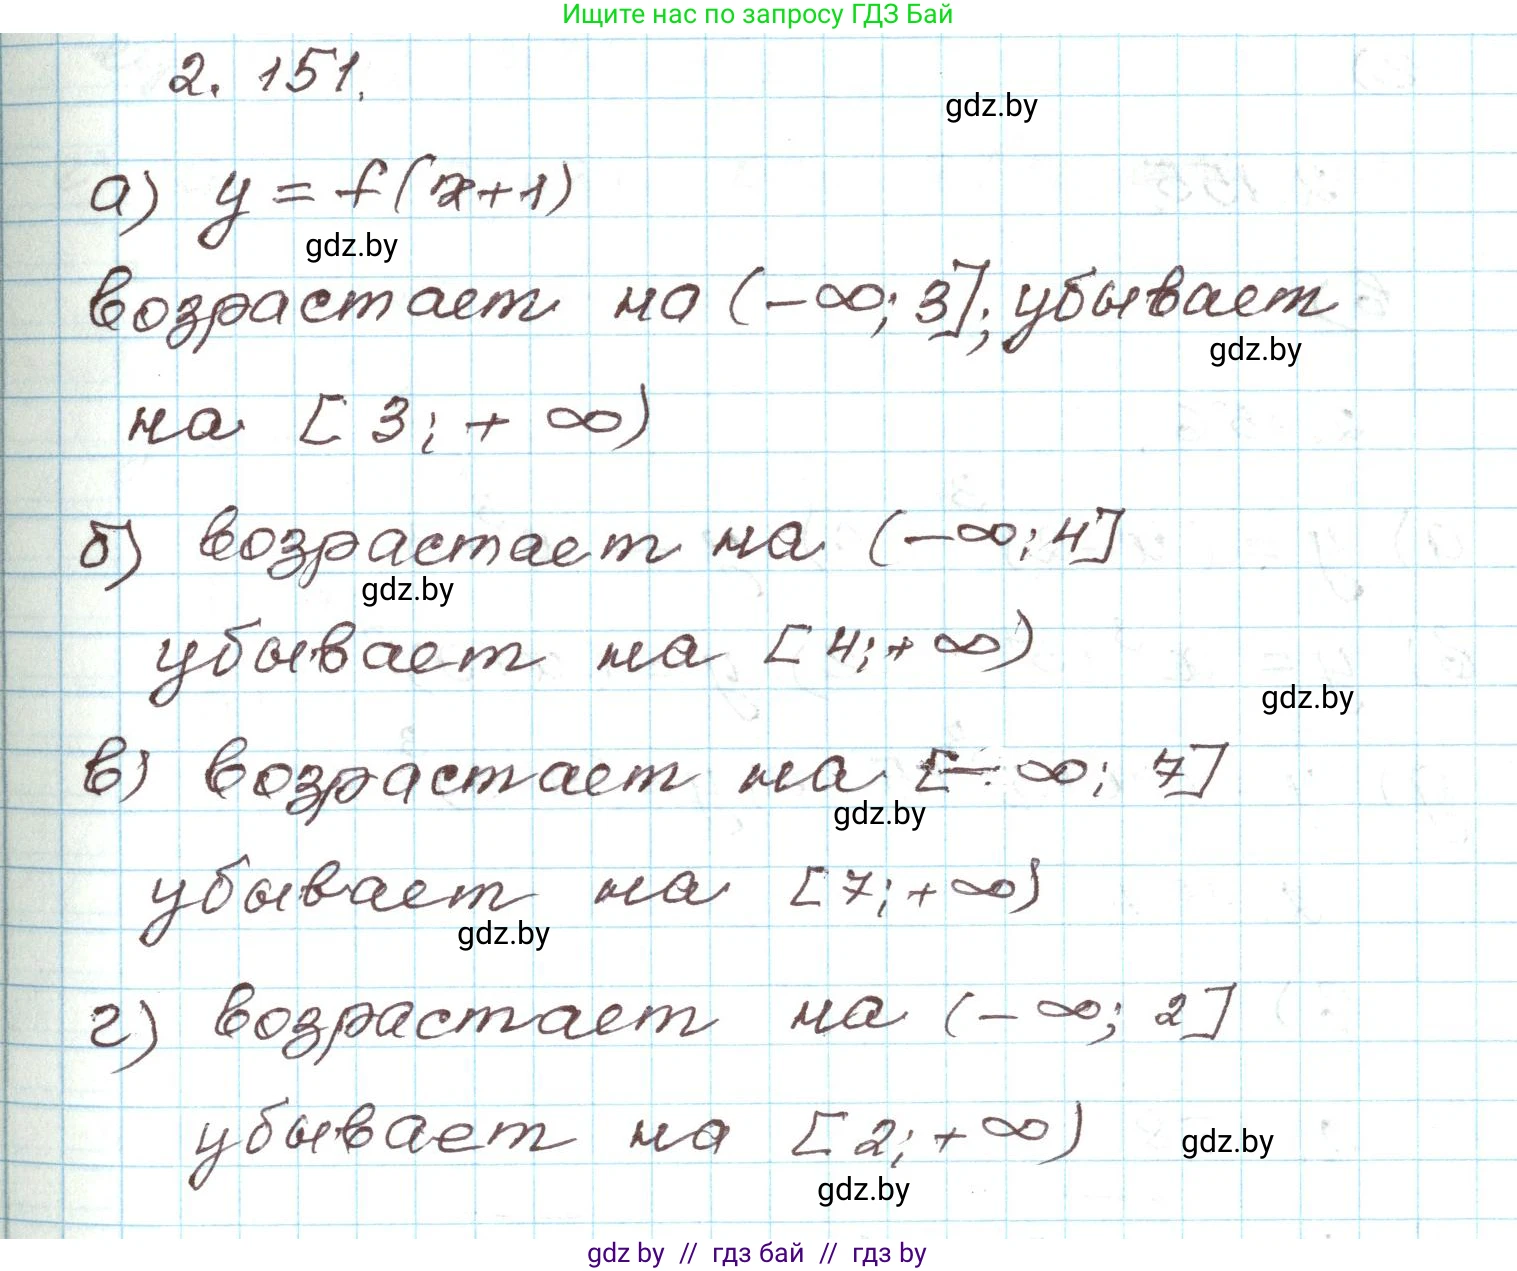 Ищите нас по запросу ГДЗ Бай
2. 151.
gdz.by
а) y = f(x+1)
gdz.by
возрастает на (-∞; 3]; убывает
gdz.by
на [3; + ∞)
б) возрастает на (-∞; 4]
gdz.by
убывает на [4; + ∞)
gdz.by
в) возрастает на [- ∞; 7]
gdz.by
убывает на [7; + ∞)
gdz.by
г) возрастает на (- ∞; 2]
убывает на [2; + ∞)
gdz.by
gdz.by
gdz by // гдз бай // гдз by